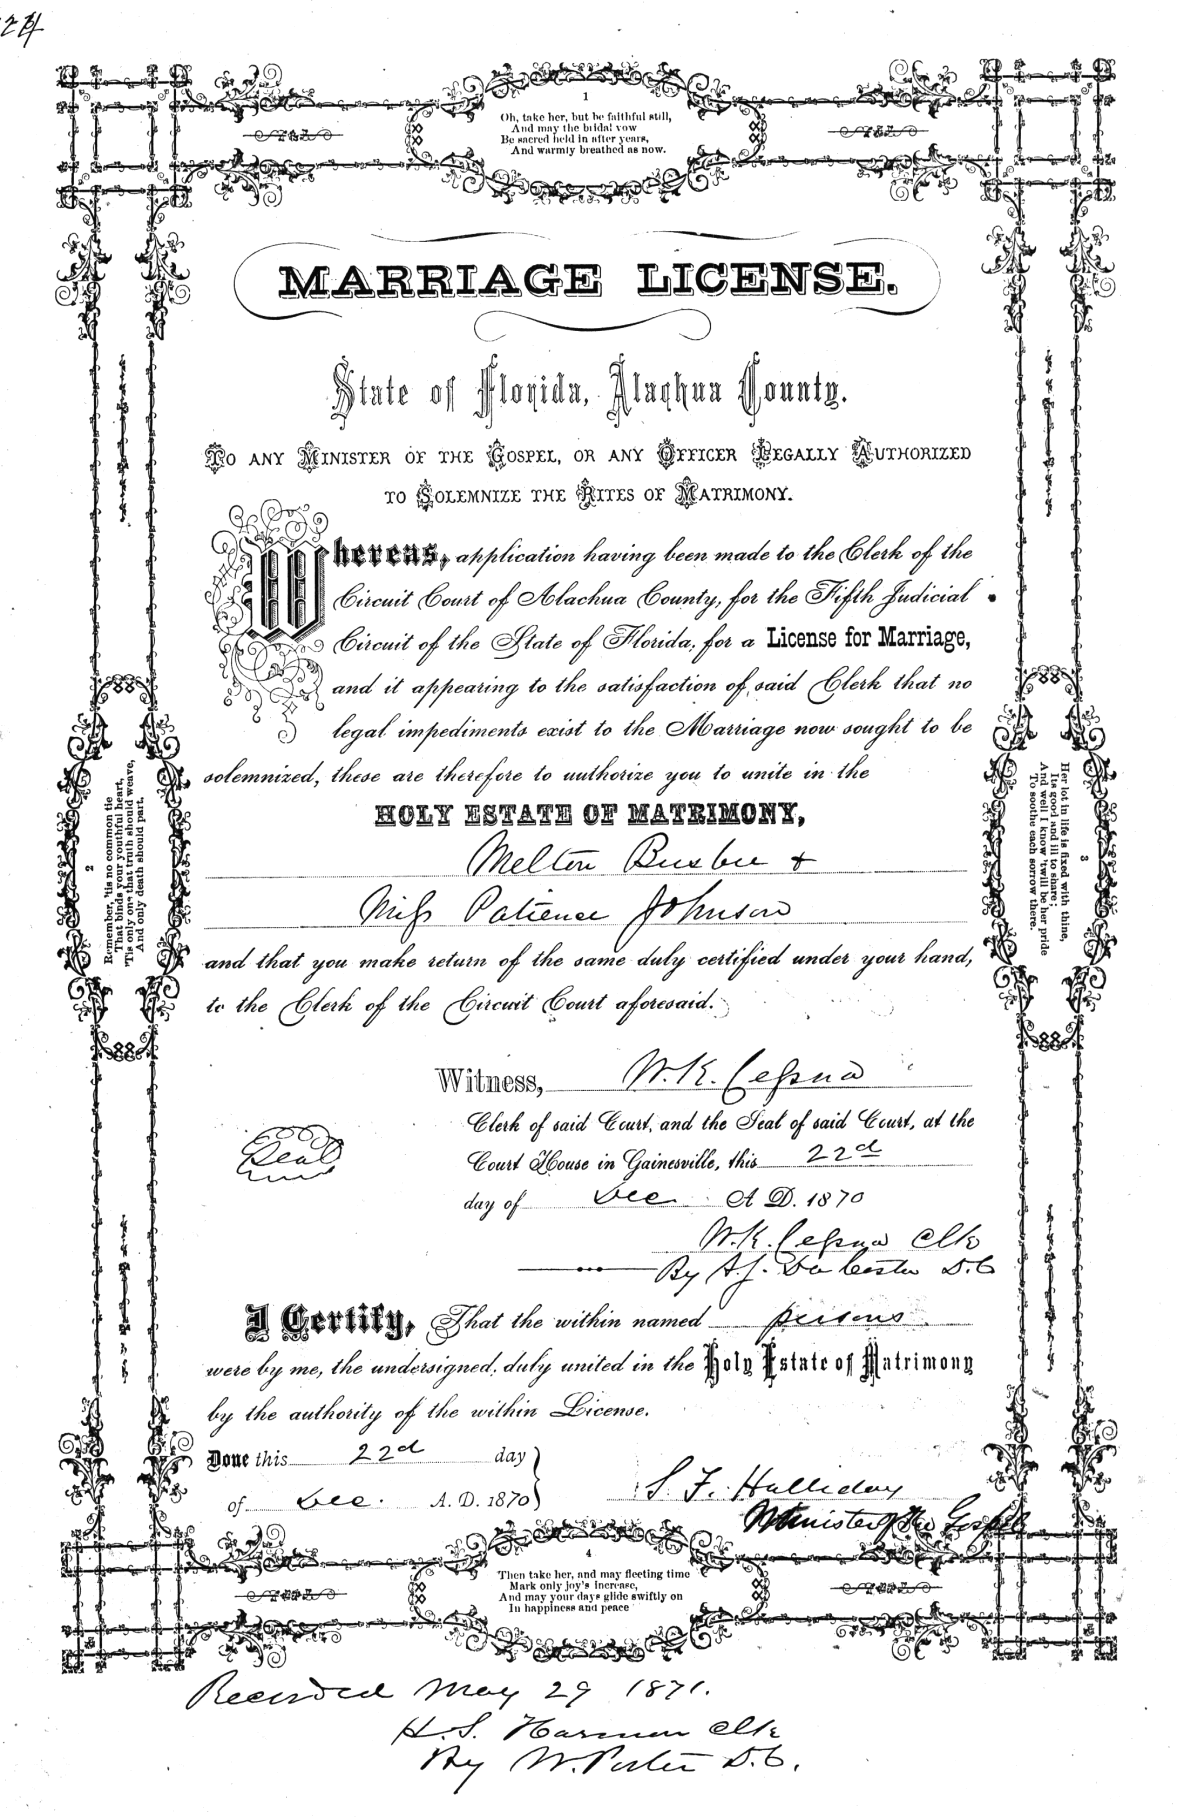 1
Oh, take her, but be faithful still,
And may the bridal vow
Be sacred held in after years,
And warmly breathed as now.
MARRIAGE LICENSE.
State of Florida, Alachua County.
TO ANY MINISTER OF THE GOSPEL, OR ANY OFFICER LEGALLY AUTHORIZED
TO SOLEMNIZE THE RITES OF MATRIMONY.
Whereas, application having been made to the Clerk of the
Circuit Court of Alachua County, for the Fifth Judicial
Circuit of the State of Florida, for a License for Marriage,
and it appearing to the satisfaction of said Clerk that no
legal impediments exist to the Marriage now sought to be
solemnized, these are therefore to authorize you to unite in the
HOLY ESTATE OF MATRIMONY,
Melton Busbee +
Miss Patience Johnson
and that you make return of the same duly certified under your hand,
to the Clerk of the Circuit Court aforesaid.
2
Remember, 'tis no common tie
That binds your youthful heart,
'Tis only one that truth should weave,
And only death should part.
3
Her lot in life is fixed with thine,
Its good and ill to share;
And well I know 'twill be her pride
To soothe each sorrow there.
Witness, W. K. Cessna
Clerk of said Court, and the Seal of said Court, at the
Seal
Court House in Gainesville, this 22d
day of Dec A D. 1870
W. K. Cessna Clk
By A. J. D. C
I Certify, That the within named persons
were by me, the undersigned, duly united in the Holy Estate of Matrimony
by the authority of the within License.
Done this 22d day
of Dec. A. D. 1870
S F. Halliday
Minister of the Gospel
4
Then take her, and may fleeting time
Mark only joy's increase,
And may your days glide swiftly on
In happiness and peace
Recorded May 29 1871.
H. S. Harmon Clk
By W. Porter D. C.